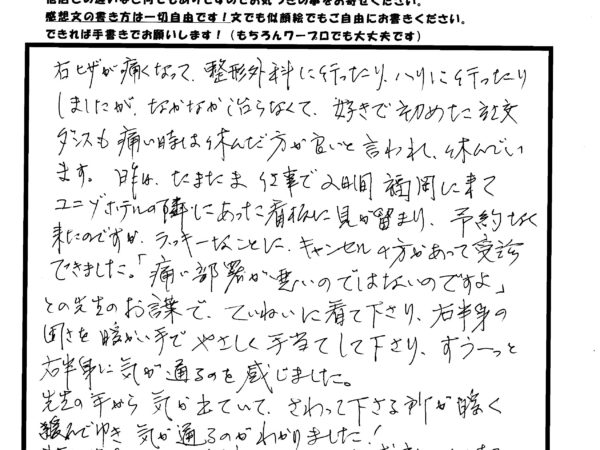 感想文の書き方は一切自由です！文でも似顔絵でもご自由にお書きください。
できれば手書きでお願いします！（もちろんワープロでも大丈夫です）
右ヒザが痛くなって、整形外科に行ったり、ハリに行ったり
しましたが、なかなか治らなくて、好きで初めた社交
ダンスも痛い時は休んだ方が良いと言われ、休んでい
ます。昨日、たまたま仕事で2日間福岡に来て
ユニゾホテルの隣にあった看板に見が留まり、予約なく
来たのですが、ラッキーなことに、キャンセルの方があって受診
できました。「痛い部署が悪いのではないのですよ」
との先生のお言葉で、ていねいに看て下さり、右半身の
固さを暖かい手でやさしく手当てして下さり、すうーっと
右半身に気が通るのを感じました。
先生の手から気が出ていて、さわって下さる所が暖く
緩んでゆき気が通るのがわかりました！